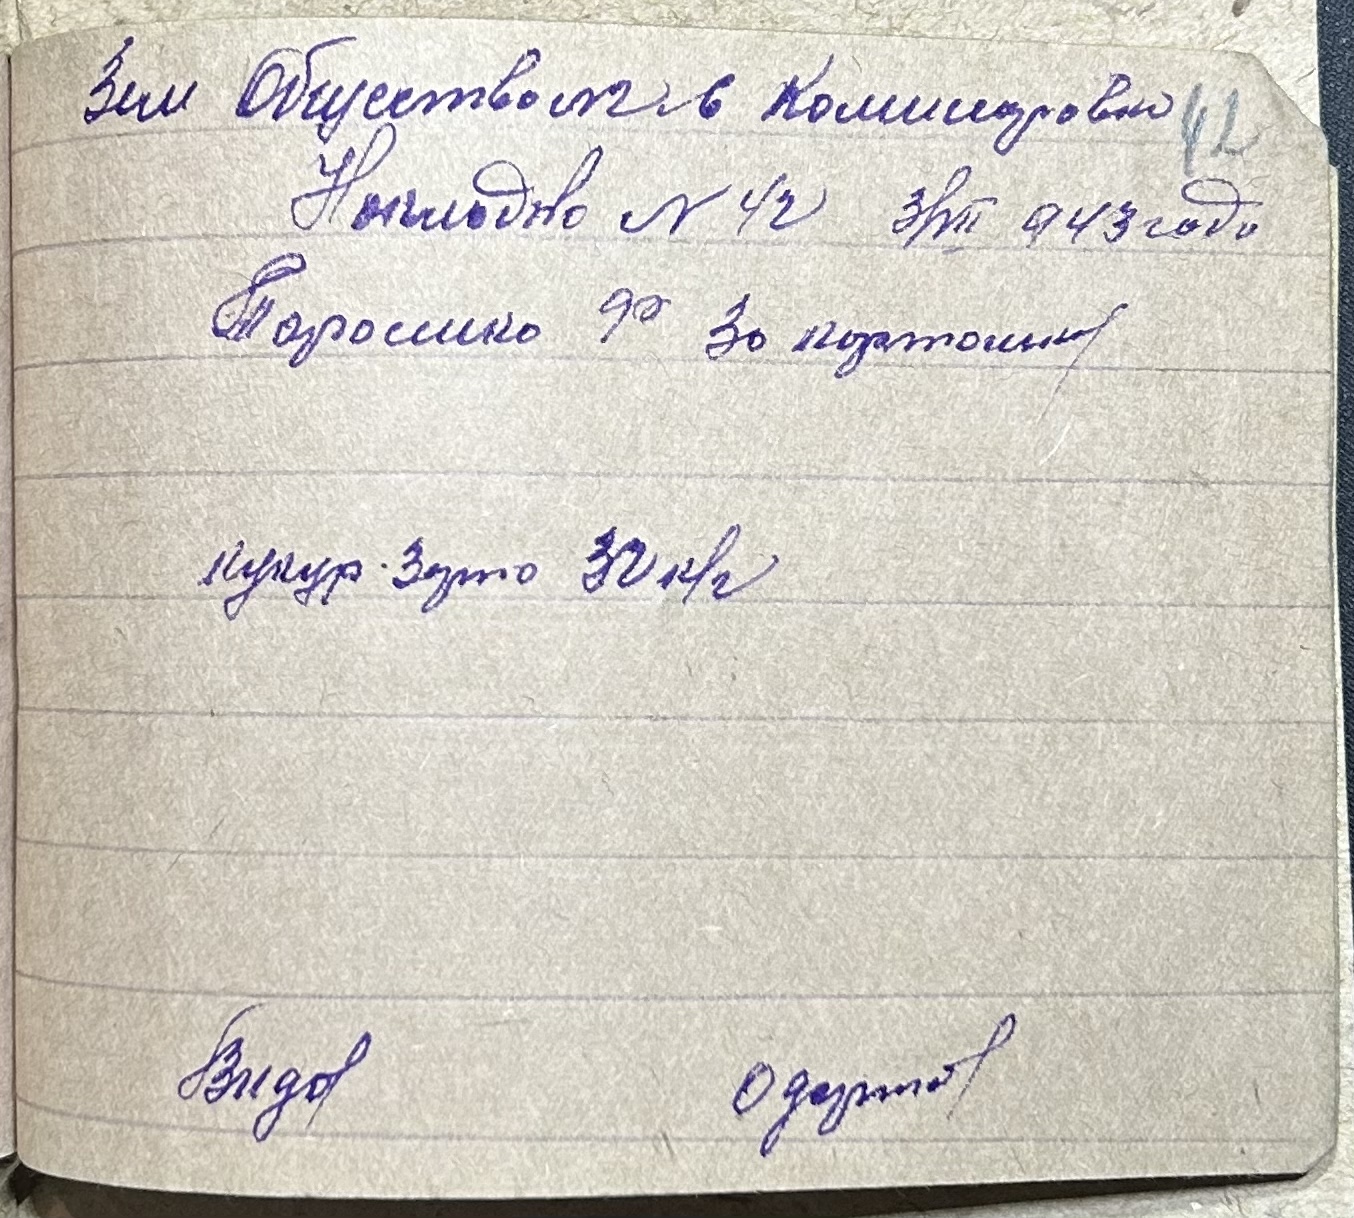 Зем Общество №2 в Комисаровке
42
Накладно N 42 3/VII 943 годо
Тарасенко Ф За картошку
кукур. Зерно 32 к/г
Видав
Одержав